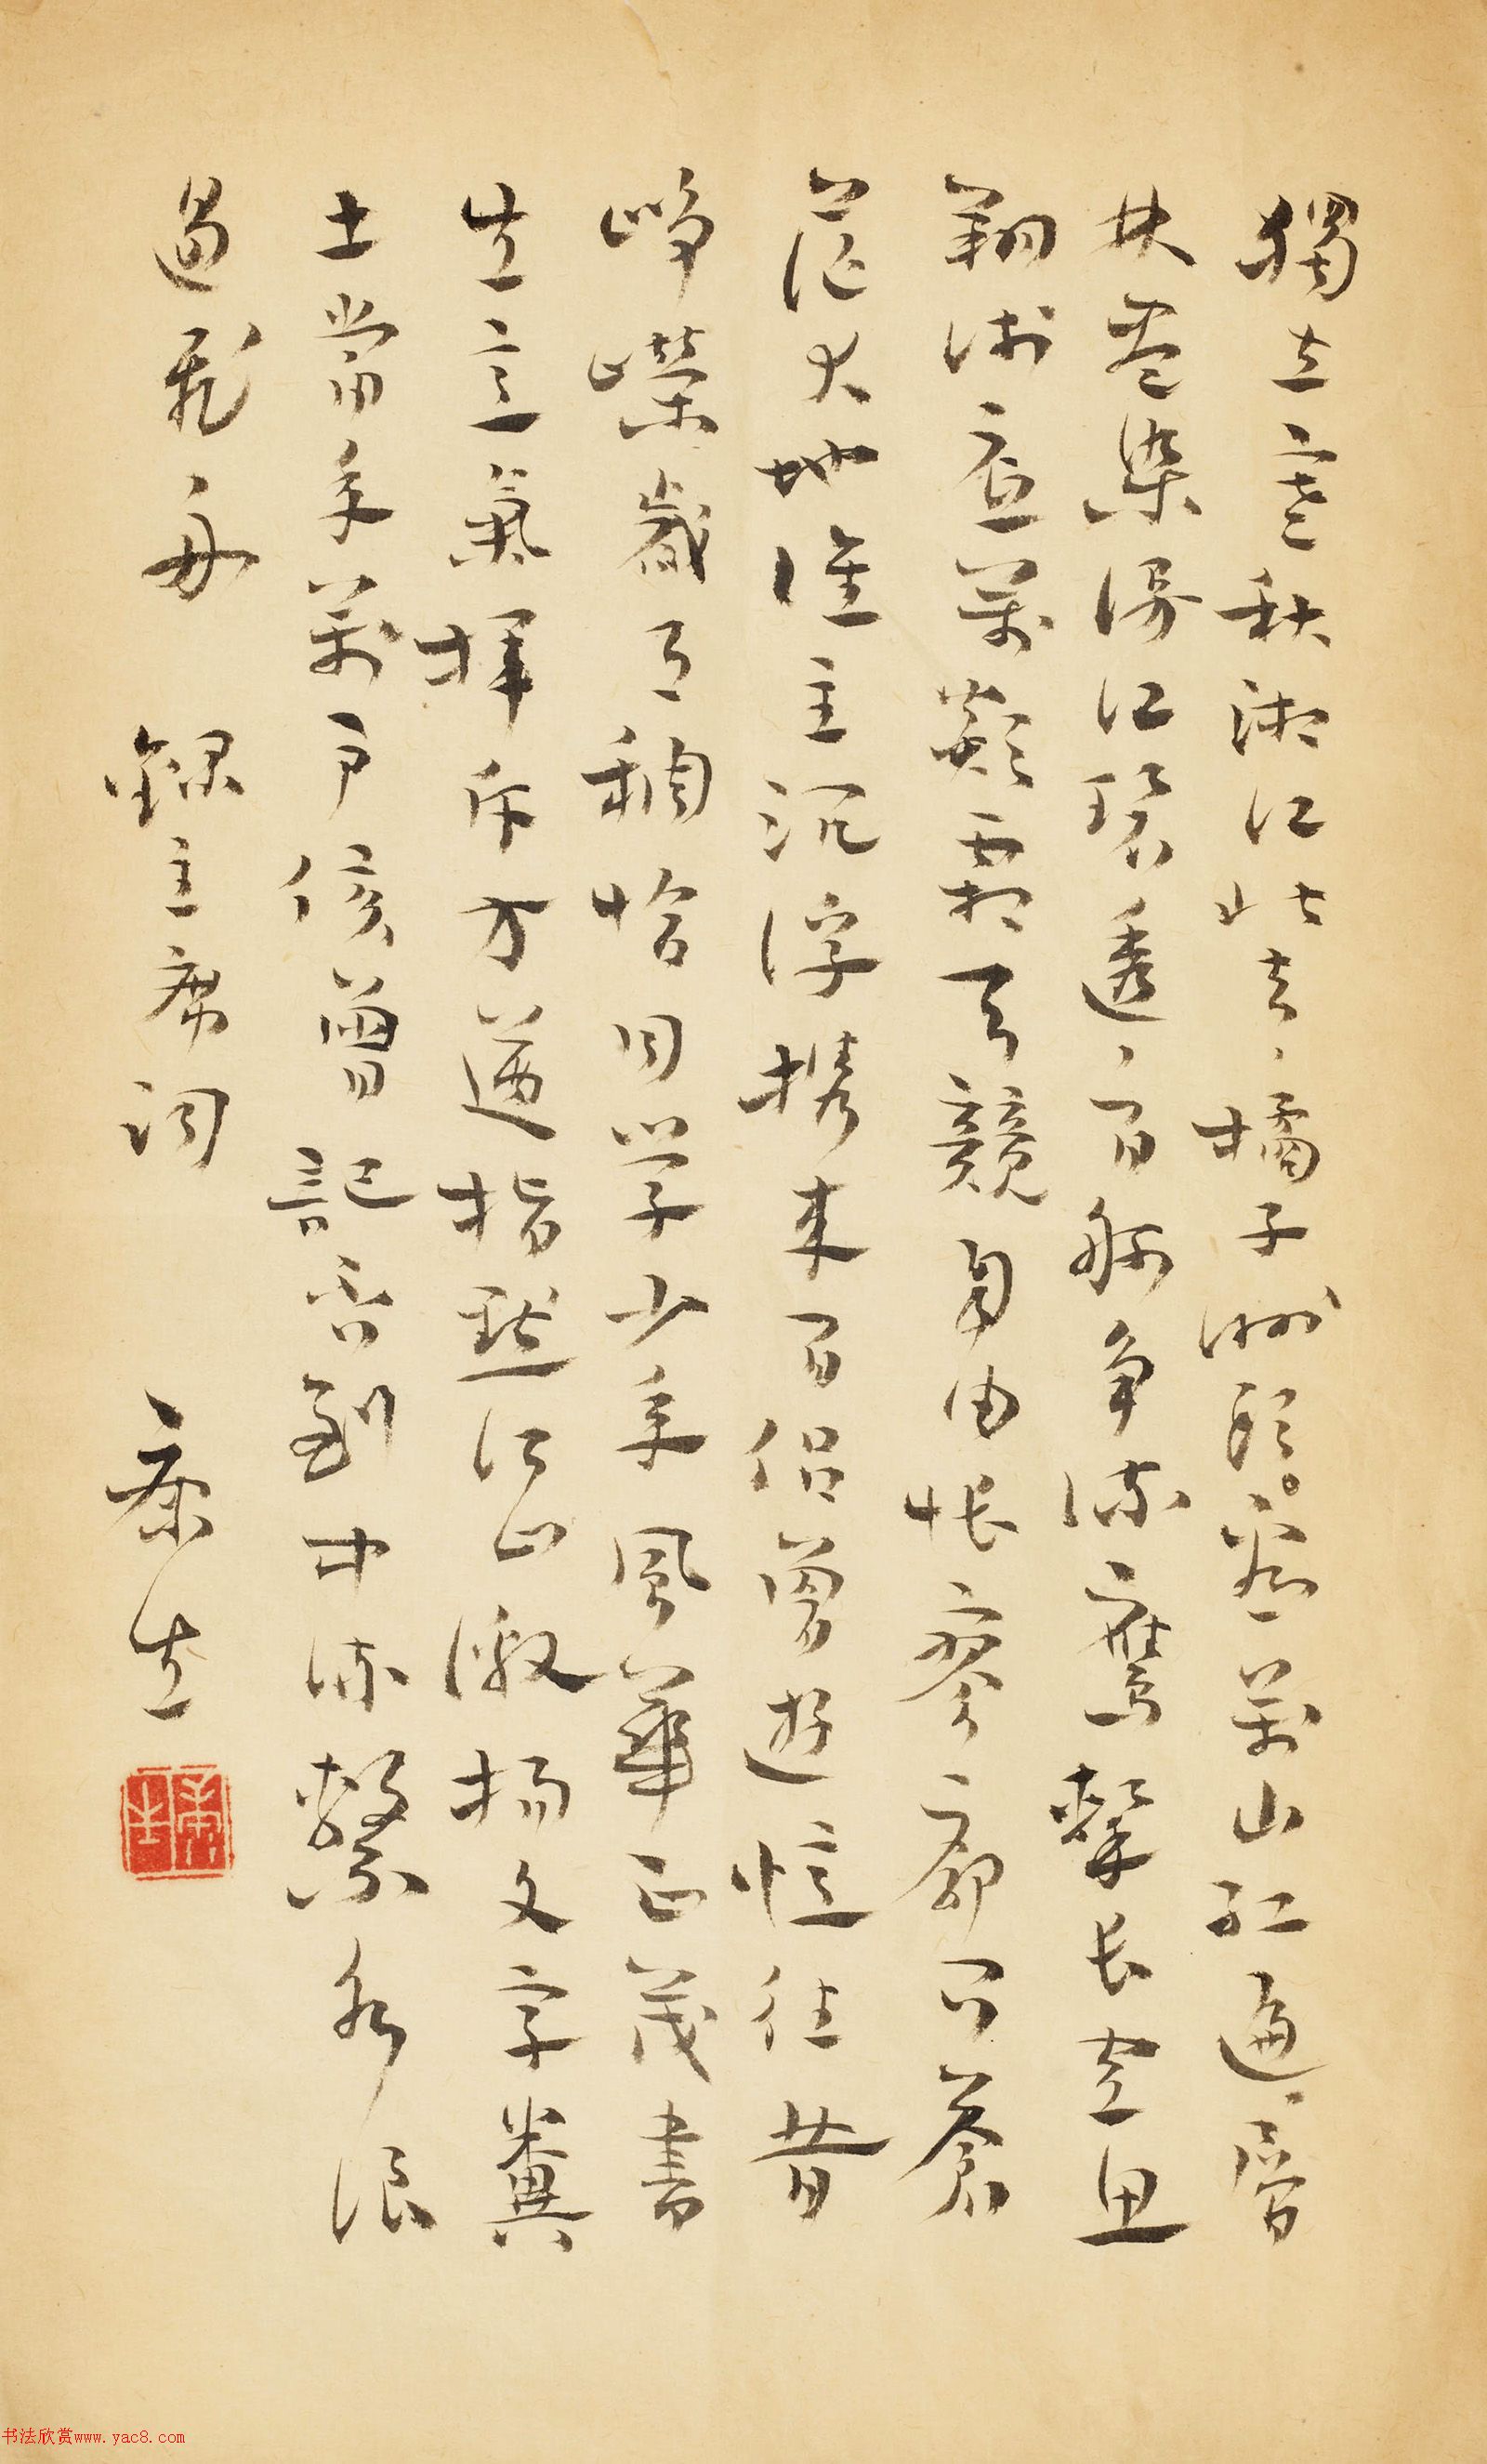 獨立寒秋湘江北去橘子洲頭看萬山紅遍層
林盡染漫江碧透百舸爭流鷹擊長空魚
翔淺底萬類霜天競自由悵寥廓問蒼
茫大地誰主沉浮攜來百侶曾遊憶往昔
崢嶸歲月稠恰同學少年風華正茂書
生意氣揮斥方遒指點江山激揚文字糞
土當年萬戶侯曾記否到中流擊水浪
遏飛舟 錄主席詞 康生
康生
书法欣赏www.yac8.com